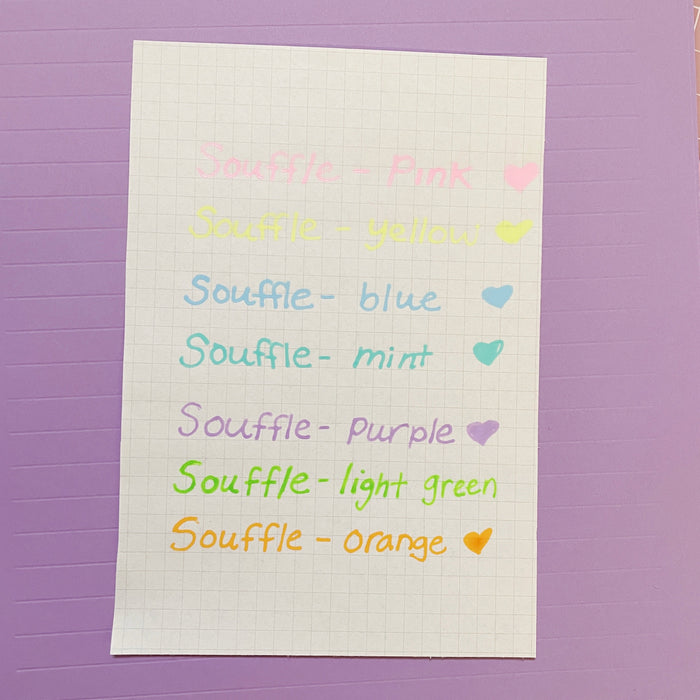 Souffle - Pink
Souffle - yellow
Souffle - blue
Souffle - mint
Souffle - purple
Souffle - light green
Souffle - orange